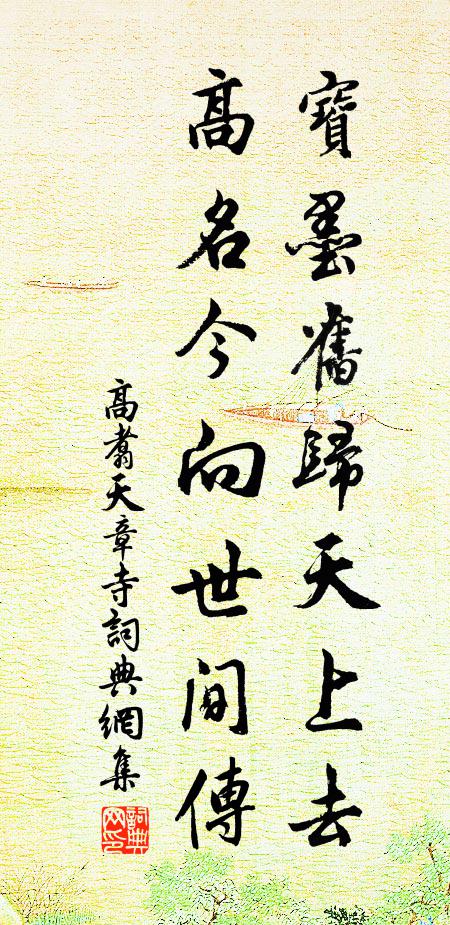 寶墨舊歸天上去
高名今向世間傳
高翥天章寺詞典網集
詞典网印